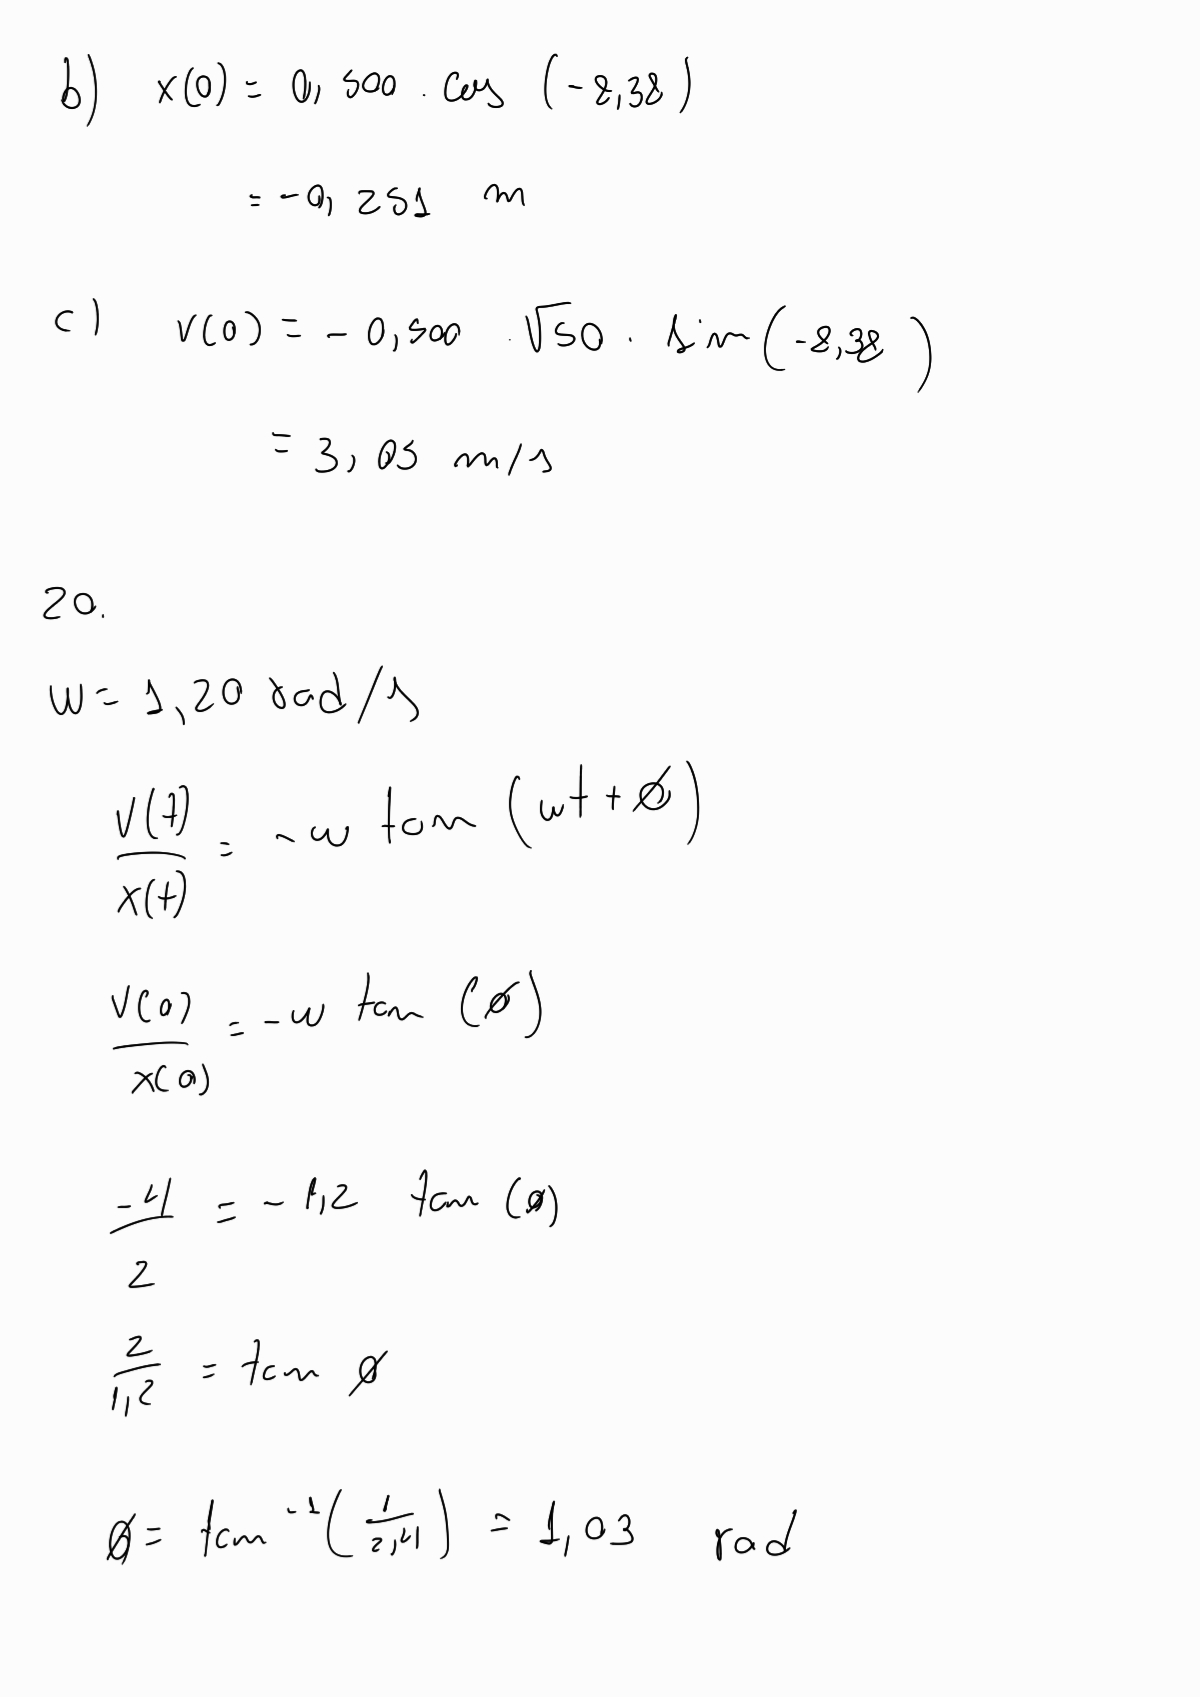 b) x(0) = 0,500 . cos (-8,38)
= -0,251 m
c) v(0) = - 0,500 . √50 . sin(-8,38)
= 3,05 m/s
20.
w = 1,20 rad/s
v(t)/x(t) = -w tan (wt + ø)
v(0)/x(0) = -w tan (ø)
-4/2 = -1,2 tan (ø)
2/1,2 = tan ø
ø = tan⁻¹(1/2,4) = 1,03 rad